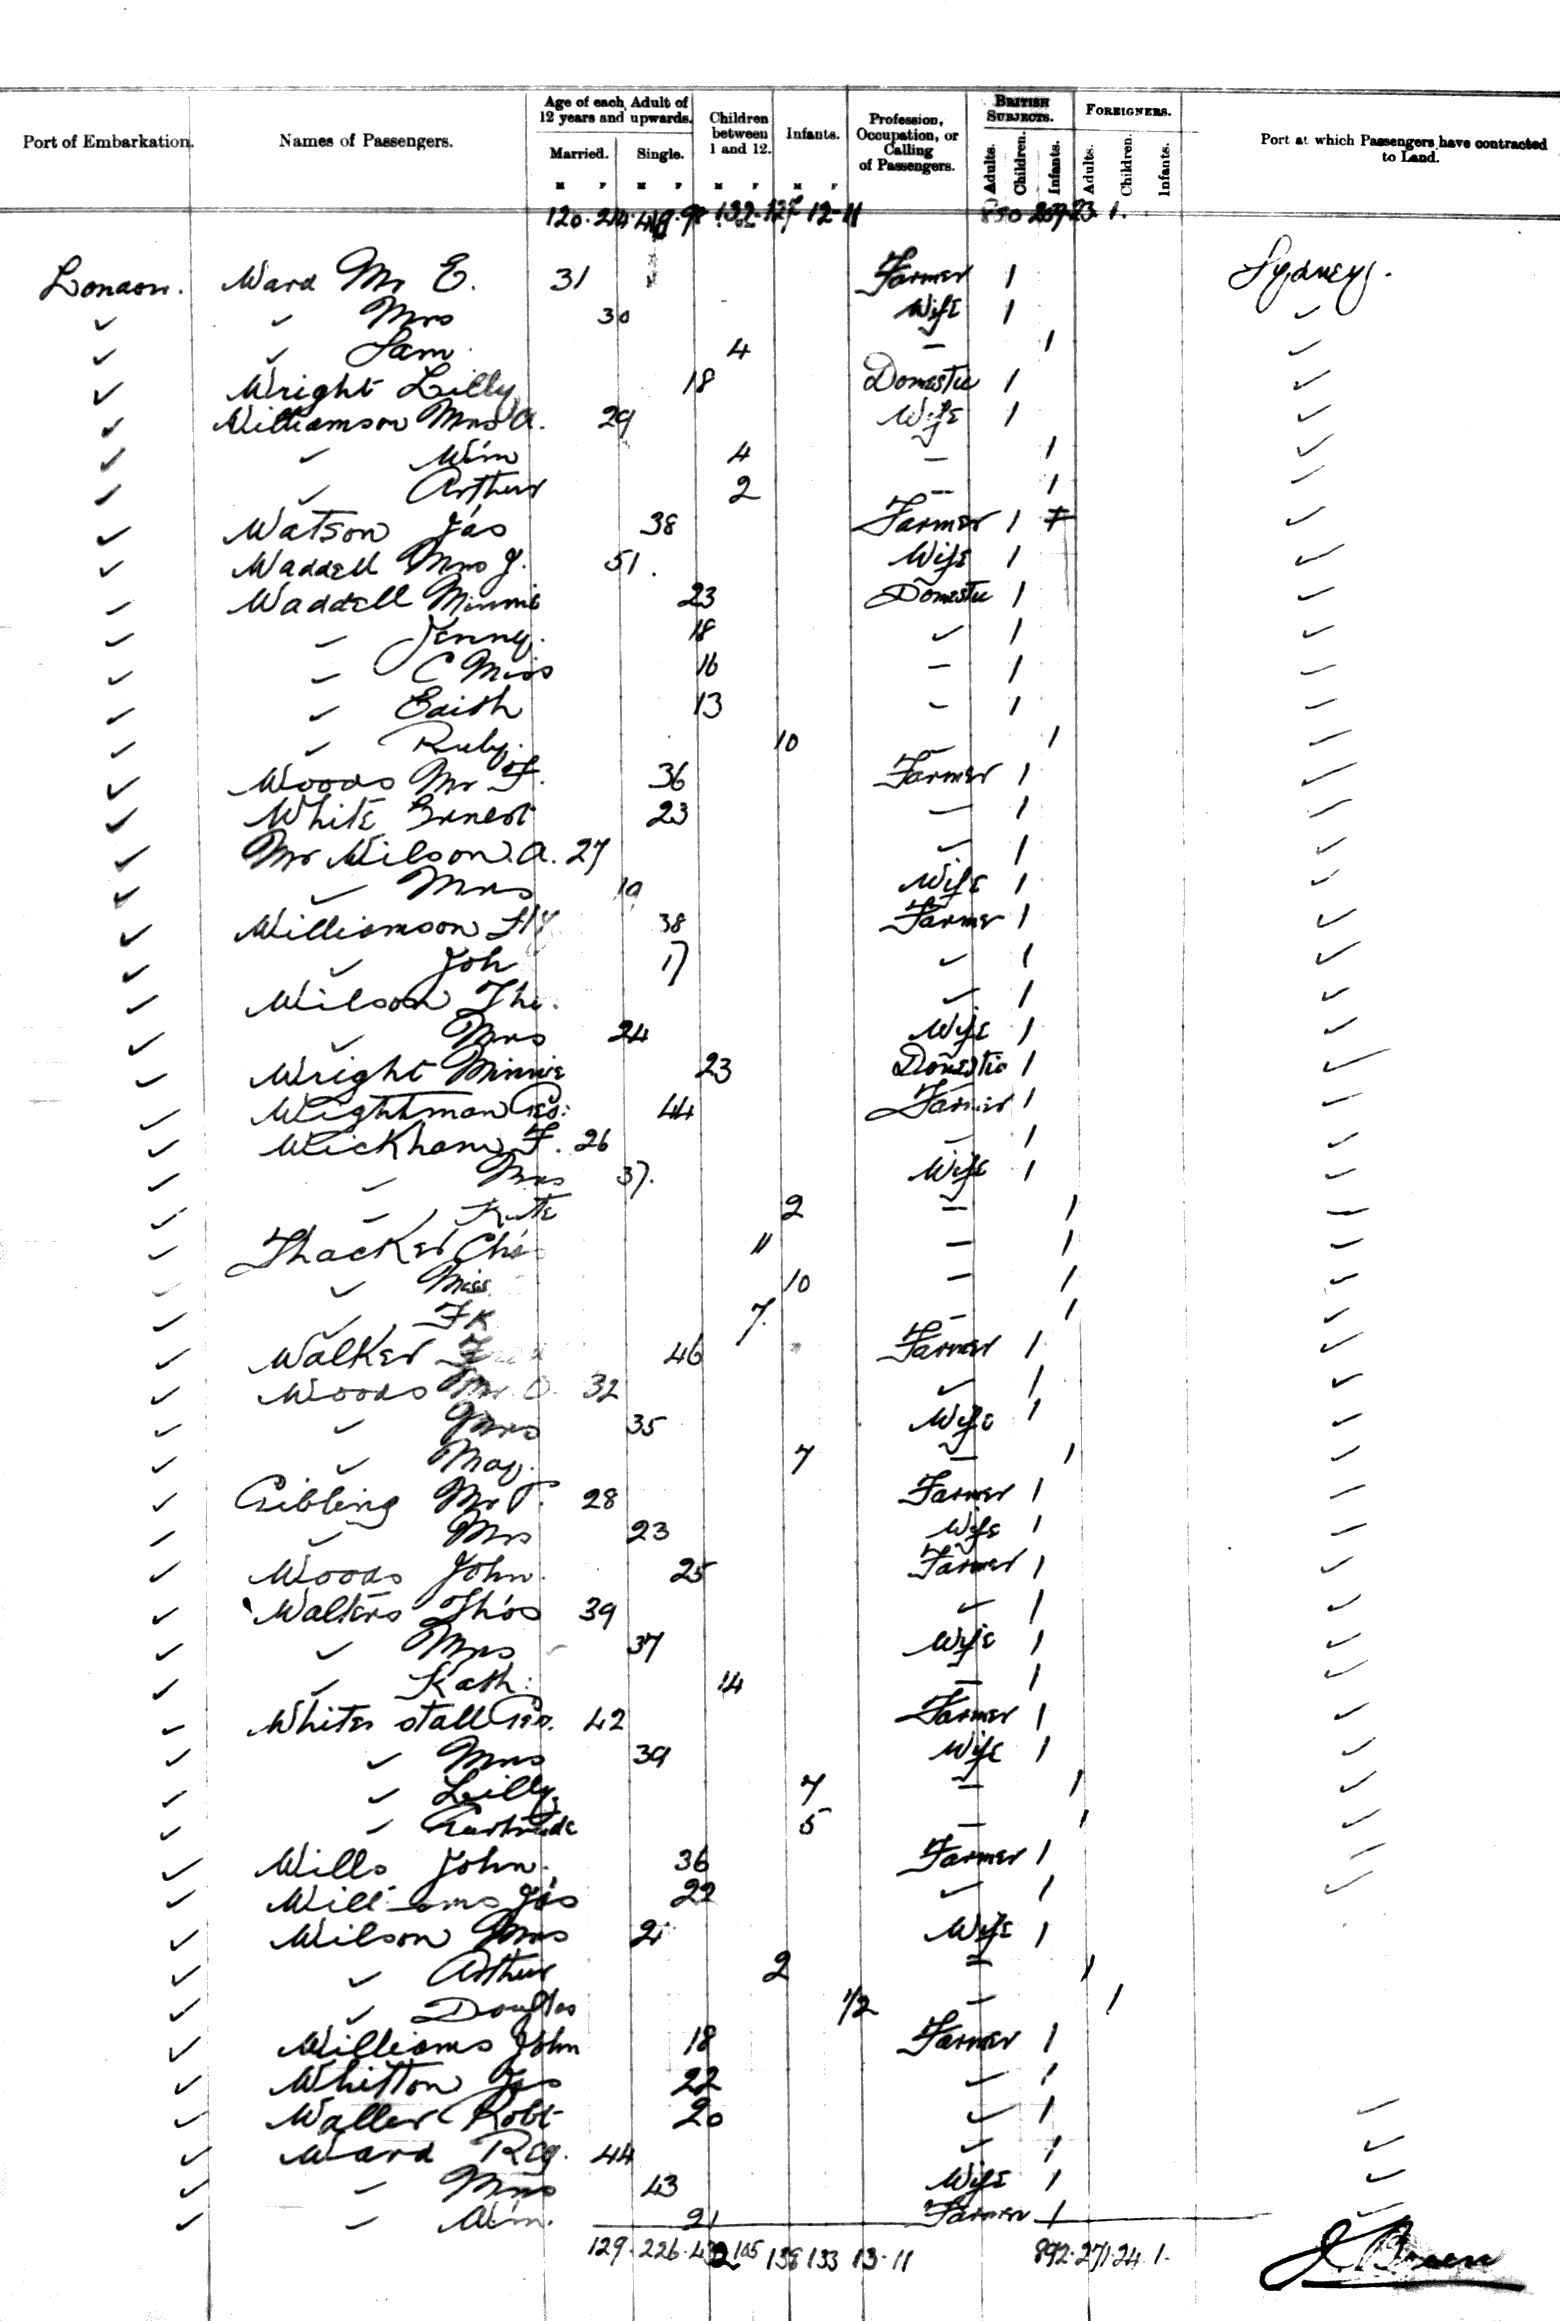 Port of Embarkation. Names of Passengers. Age of each Adult of 12 years and upwards. Married. Single. Children between 1 and 12. Infants. Profession, Occupation, or Calling of Passengers. BRITISH SUBJECTS. Adults. Children. Infants. FOREIGNERS. Adults. Children. Infants. Port at which Passengers have contracted to Land.
M F M F M F M F
120 · 214 · 419 · 98 132 - 127 12 - 11 850 269 · 23 · 1 ·
London. Ward Mr E. 31 Farmer 1 Sydney.
✓ ✓ Mrs 30 Wife 1 ✓
✓ ✓ Sam 4 – 1 ✓
✓ Wright Lilly 18 Domestic 1 ✓
✓ Williamson Mrs A. 29 Wife 1 ✓
✓ ✓ Wm 4 – 1 ✓
✓ ✓ Arthur 2 – 1 ✓
✓ Watson Jas 38 Farmer 1 ✓
✓ Waddell Mrs J. 51. Wife 1 ✓
✓ Waddell Minnie 23 Domestic 1 ✓
✓ ✓ Jenny. 18 ✓ 1 ✓
✓ ✓ C Miss 16 – 1 ✓
✓ ✓ Edith 13 – 1 ✓
✓ ✓ Ruby. 10 – 1 ✓
✓ Woods Mr F. 36 Farmer 1 ✓
✓ White Ernest 23 – 1 ✓
✓ Mr Wilson A. 27 ✓ 1 ✓
✓ ✓ Mrs 19 Wife 1 ✓
✓ Williamson Hy 38 Farmer 1 ✓
✓ ✓ Joh 17 ✓ 1 ✓
✓ Wilson Tho. ✓ 1 ✓
✓ ✓ Mrs 24 Wife 1 ✓
✓ Wright Minnie 23 Domestic 1 ✓
✓ Wightman Geo: 44 Farmer 1 ✓
✓ Wickham F. 26 – 1 ✓
✓ ✓ Mrs 37. Wife 1 ✓
✓ ✓ Kate 2 – 1 –
✓ Thacker Chas 11 – 1 ✓
✓ ✓ Miss 10 – 1 ✓
✓ ✓ Fk 7. – 1 ✓
✓ Walker 46 Farmer 1 ✓
✓ Woods Mr 32 ✓ 1 ✓
✓ ✓ Mrs 35 Wife 1 ✓
✓ ✓ May. 7 – 1 ✓
✓ Gibling Mr T. 28 Farmer 1 ✓
✓ ✓ Mrs 23 Wife 1 ✓
✓ Woods John. 25 Farmer 1 ✓
✓ Walters Thos 39 ✓ 1 ✓
✓ ✓ Mrs 37 Wife 1 ✓
✓ ✓ Kath: 14 – 1 ✓
✓ Whiter stall Geo. 42 Farmer 1 ✓
✓ ✓ Mrs 39 Wife 1 ✓
✓ ✓ Lilly 7 – 1 ✓
✓ ✓ Gertrude 5 – 1 ✓
✓ Wills John. 36 Farmer 1 ✓
✓ Williams Jas 22 ✓ 1 ✓
✓ Wilson Mrs Wife 1
✓ ✓ Arthur 2 – 1
✓ ✓ Douglas 1/2 – 1
✓ Williams John 18 Farmer 1
✓ Whitton Jas 22 ✓ 1
✓ Waller Robt 20 ✓ 1 ✓
✓ Ward Reg. 44 ✓ 1 ✓
✓ ✓ Mrs 43 Wife 1 ✓
✓ ✓ Wm. 21 Farmer 1 ✓
129 · 226 · 105 138 133 13 · 11 892 · 271 · 24 · 1 ·
J. Breen